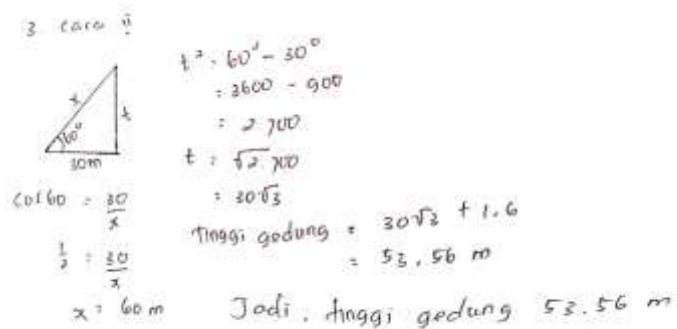 3 cara ::
x
t
60°
30m
cos 60 = 30/x
1/2 = 30/x
x = 60 m
t² = 60² - 30²
= 3600 - 900
= 2700
t = √2.700
= 30√3
Tinggi gedung = 30√3 + 1.6
= 53.56 m
Jadi, tinggi gedung 53.56 m